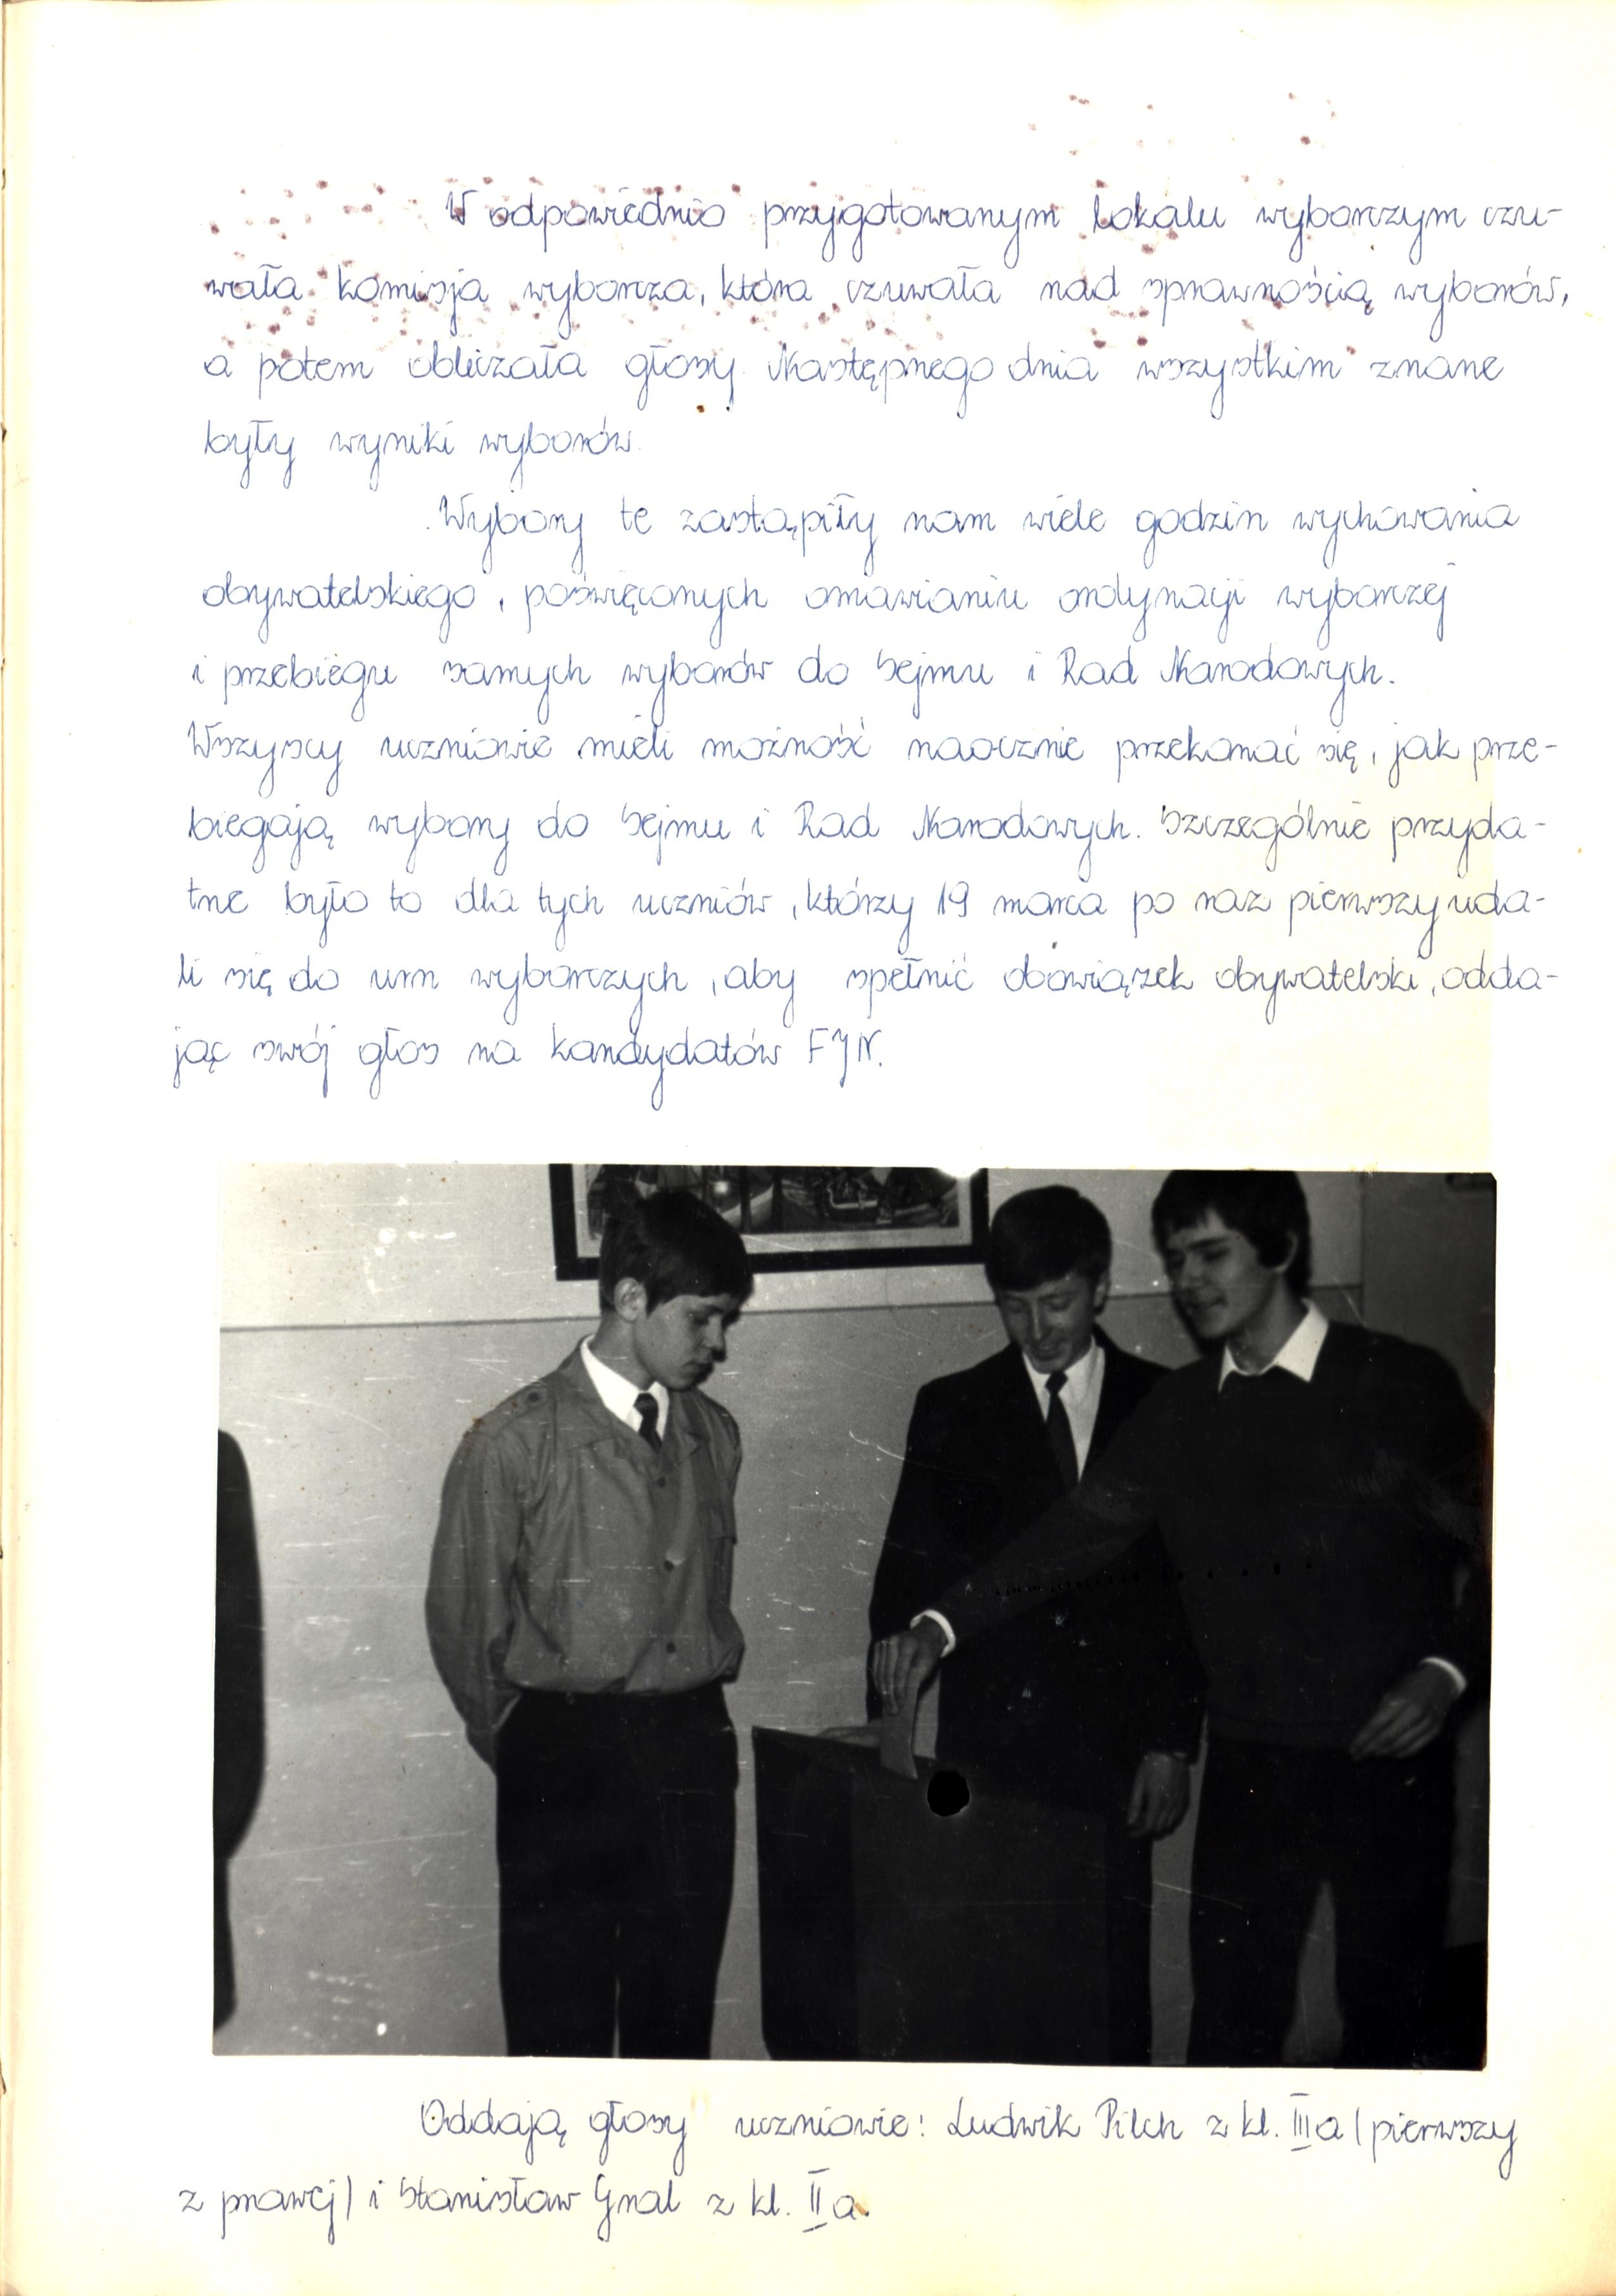 W odpowiednio przygotowanym lokalu wyborczym czu-
wała komisja wyborcza, która czuwała nad sprawnością wyborów,
a potem obliczała głosy. Następnego dnia wszystkim znane
były wyniki wyborów.
Wybory te zastąpiły nam wiele godzin wychowania
obywatelskiego, poświęconych omawianiu ordynacji wyborczej
i przebiegu samych wyborów do Sejmu i Rad Narodowych.
Wszyscy uczniowie mieli możność naocznie przekonać się, jak prze-
biegają wybory do Sejmu i Rad Narodowych. Szczególnie przyda-
tne było to dla tych uczniów, którzy 19 marca po raz pierwszy uda-
li się do urn wyborczych, aby spełnić obowiązek obywatelski, odda-
jąc swój głos na kandydatów FJN.
Oddają głosy uczniowie: Ludwik Pilch z kl. III a (pierwszy
z prawej) i Stanisław Gnal z kl. II a.